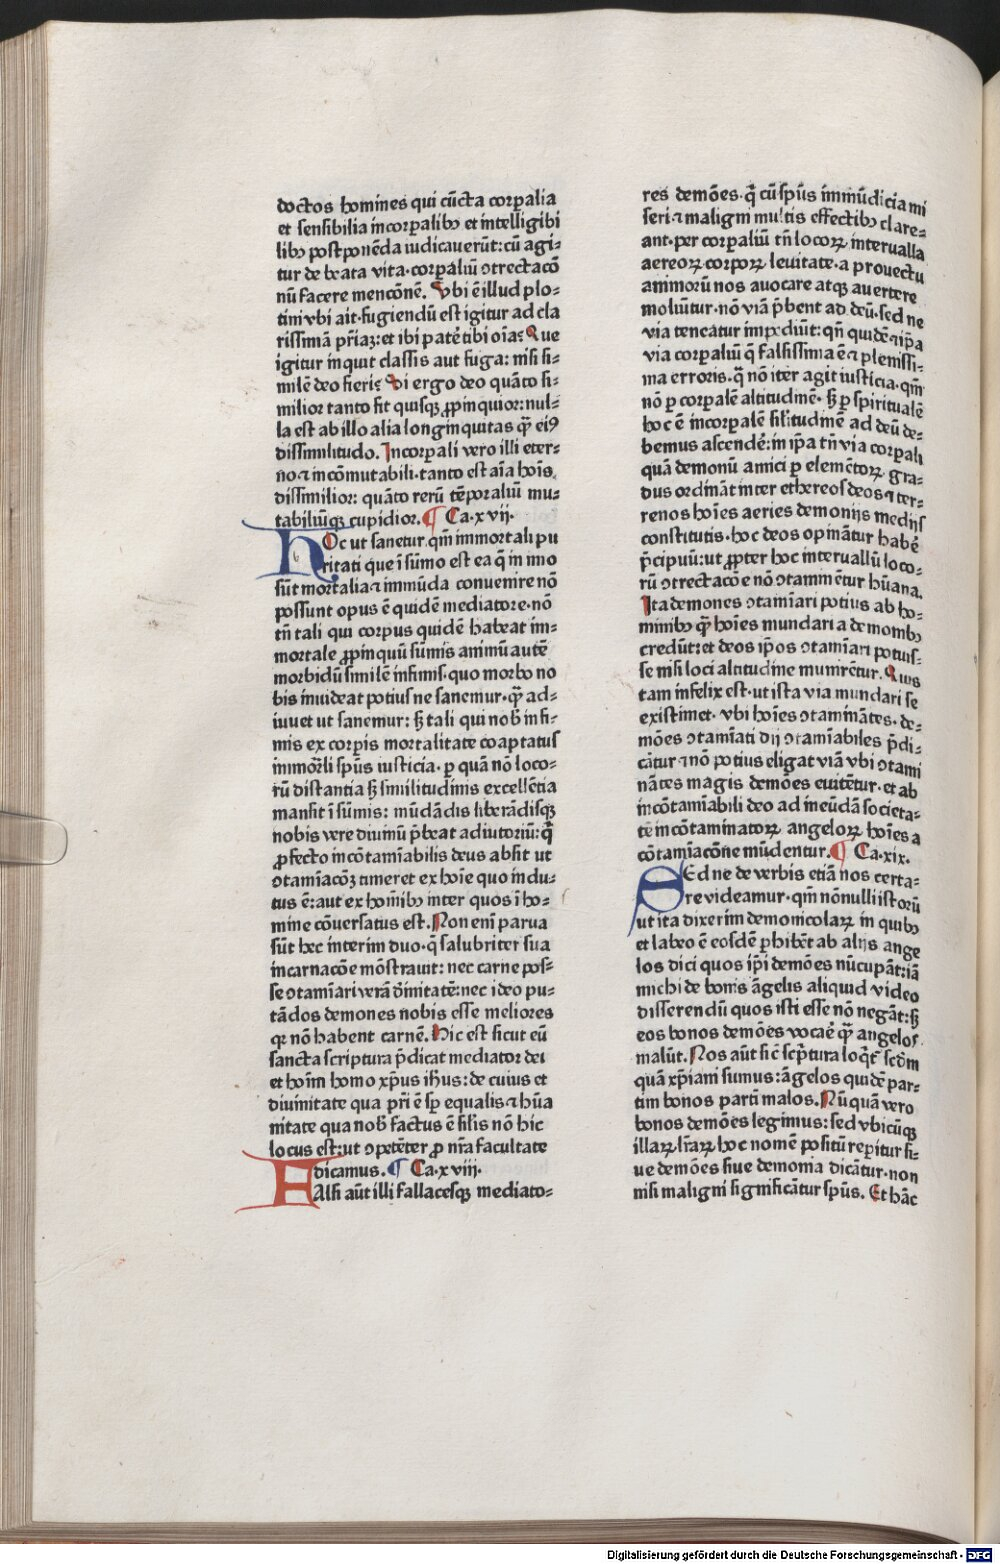 doctos homines qui cūcta corꝑalia
et sensibilia incorꝑalibꝯ et intelligibi
libꝯ postponēda iudicauerūt: cū agi⸗
tur de beata vita. corꝑaliū ↄtrectacō
nū facere mencōnē. Vbi ē illud plo⸗
tini vbi ait. fugiendū est igitur ad cla
rissimā pr̄iaꝫ: et ibi pater̄ et ibi oīa. Que
igitur inquit classis aut fuga: nisi si⸗
milē deo fieri. Si ergo deo quāto si⸗
milior tanto fit quisqꝫ ꝓpinquior: nul⸗
la est ab illo alia longinquitas qꝫ̄ eiꝯ
dissimilitudo. Incorꝑali vero illi eter⸗
no ⁊ incōmutabili. tanto est aīa hoīs
dissimilior: quāto rerū tēporaliū mu⸗
tabiliūqꝫ cupidior. ¶ Ca. xvij.
HOc ut sanetur. qm̄ immortali pu
ritati que ī sūmo est ea q̄ in imo
sūt mortalia ⁊ immūda conuenire nō
possunt opus ē quidē mediatore. nō
tn̄ tali qui corpus quidē habeat im⸗
mortale ꝓpinquū sūmis animū autē
morbidū similē infimis. quo morbo no
bis inuideat potius ne sanemur. qꝫ̄ ad⸗
iuuet ut sanemur: sꝫ tali qui nob̄ infi⸗
mis ex corꝑis mortalitate coaptatus
immōrli spūs iusticia. ꝑ quā nō loco⸗
rū distantia sꝫ similitudinis excellētia
mansit ī sūmis: mūdādis liberādisqꝫ
nobis vere diuinū p̄beat adiutoriū: q̄
ꝓfecto incōtamīabilis deus absit ut
ↄtamīacōꝫ timeret ex hoīe quo indu⸗
tus ē: aut ex homībꝯ inter quos ī ho⸗
mine cōuersatus est. Non enī parua
sūt hec interim duo. q̄ salubriter sua
incarnacōe mōstrauit: nec carne pos⸗
se ↄtamīari verā d̄initatē: nec ideo pu⸗
tādos demones nobis esse meliores
qꝫ nō habent carnē. Hic est sicut eū
sancta scriptura p̄dicat mediator dei
et hoīm homo xp̄us ih̄us: de cuius et
diuinitate qua pr̄i ē sꝑ equalis ⁊ hūa
nitate qua nob̄ factus ē silis nō hic
locus est: ut ↄpetēter ꝓ nr̄a facultate
dicamus. ¶ Ca. xviij.
FAlsi aūt illi fallacesqꝫ mediato⸗
res demōes. q̄ cū spūs īmūdicia mi
seri ⁊ maligni multis effectibꝯ clare⸗
ant. per corꝑaliū tn̄ locoꝝ interualla
aereoꝝ corpoꝝ leuitate. a prouectu
animorū nos auocare atqꝫ auertere
moliūtur. nō viā p̄bent ad deū. sed ne
via teneatur impediūt: qn̄ quidē ⁊ ip̄a
via corꝑaliū q̄ falsissima ē ⁊ plenissi⸗
ma erroris. q̄ nō iter agit iusticia. qm̄
nō ꝑ corꝑalē altitudinē. sꝫ ꝑ spiritualē
hoc ē incorꝑalē silitudinē ad deū de⸗
bemus ascendē: in ip̄a tn̄ via corꝑali
quā demonū amici ꝑ elemētoꝝ gra⸗
dus ordināt inter ethereos deos ⁊ ter⸗
renos hoīes aeries demonijs medijs
constitutis. hoc deos opināntur habē
p̄cipuū: ut ꝓpter hoc interuallū loco⸗
rū ↄtrectacōe nō ↄtamin̄etur hūana.
Ita demones ↄtamīari potius ab ho⸗
minibꝯ qꝫ̄ hoīes mundari a demonibꝯ
credūt: et deos ip̄os ↄtamīari potuis⸗
se nisi loci altitudine munirētur. Quis
tam infelix est. ut ista via mundari se
existimet. vbi hoīes ↄtaminātes. de⸗
mōes ↄtamīati dij ↄtamīabiles p̄di⸗
cātur ⁊ nō potius eligat viā vbi ↄtami
nātes magis demōes euitētur. et ab
incōtamīabili deo ad ineūdā societa⸗
tē incōtaminatoꝝ angeloꝝ hoīes a
cōtamīacōne mūdentur. ¶ Ca. xix.
SEd ne de verbis etiā nos certa⸗
re videamur. qm̄ nōnulli istorū
ut ita dixerim demonicolaꝝ in quibꝯ
et labeo ē eosdē ꝑhibēt ab alijs ange
los dici quos ip̄i demōes nūcupāt: iā
michi de bonis āgelis aliquid video
disserendū quos isti esse nō negāt: sꝫ
eos bonos demōes vocaē qꝫ̄ angelos
malūt. Nos aūt sic̄ scp̄tura loqt̄ scd̄m
quā xp̄iani sumus: āgelos quidē par⸗
tim bonos partī malos. Nūquā vero
bonos demōes legimus: sed vbicūqꝫ
illaꝝ lr̄aꝝ hoc nomē positū reꝑitur si⸗
ue demōes siue demonia dicātur. non
nisi maligni significātur spūs. Et hāc
Digitalisierung gefördert durch die Deutsche Forschungsgemeinschaft - DFG